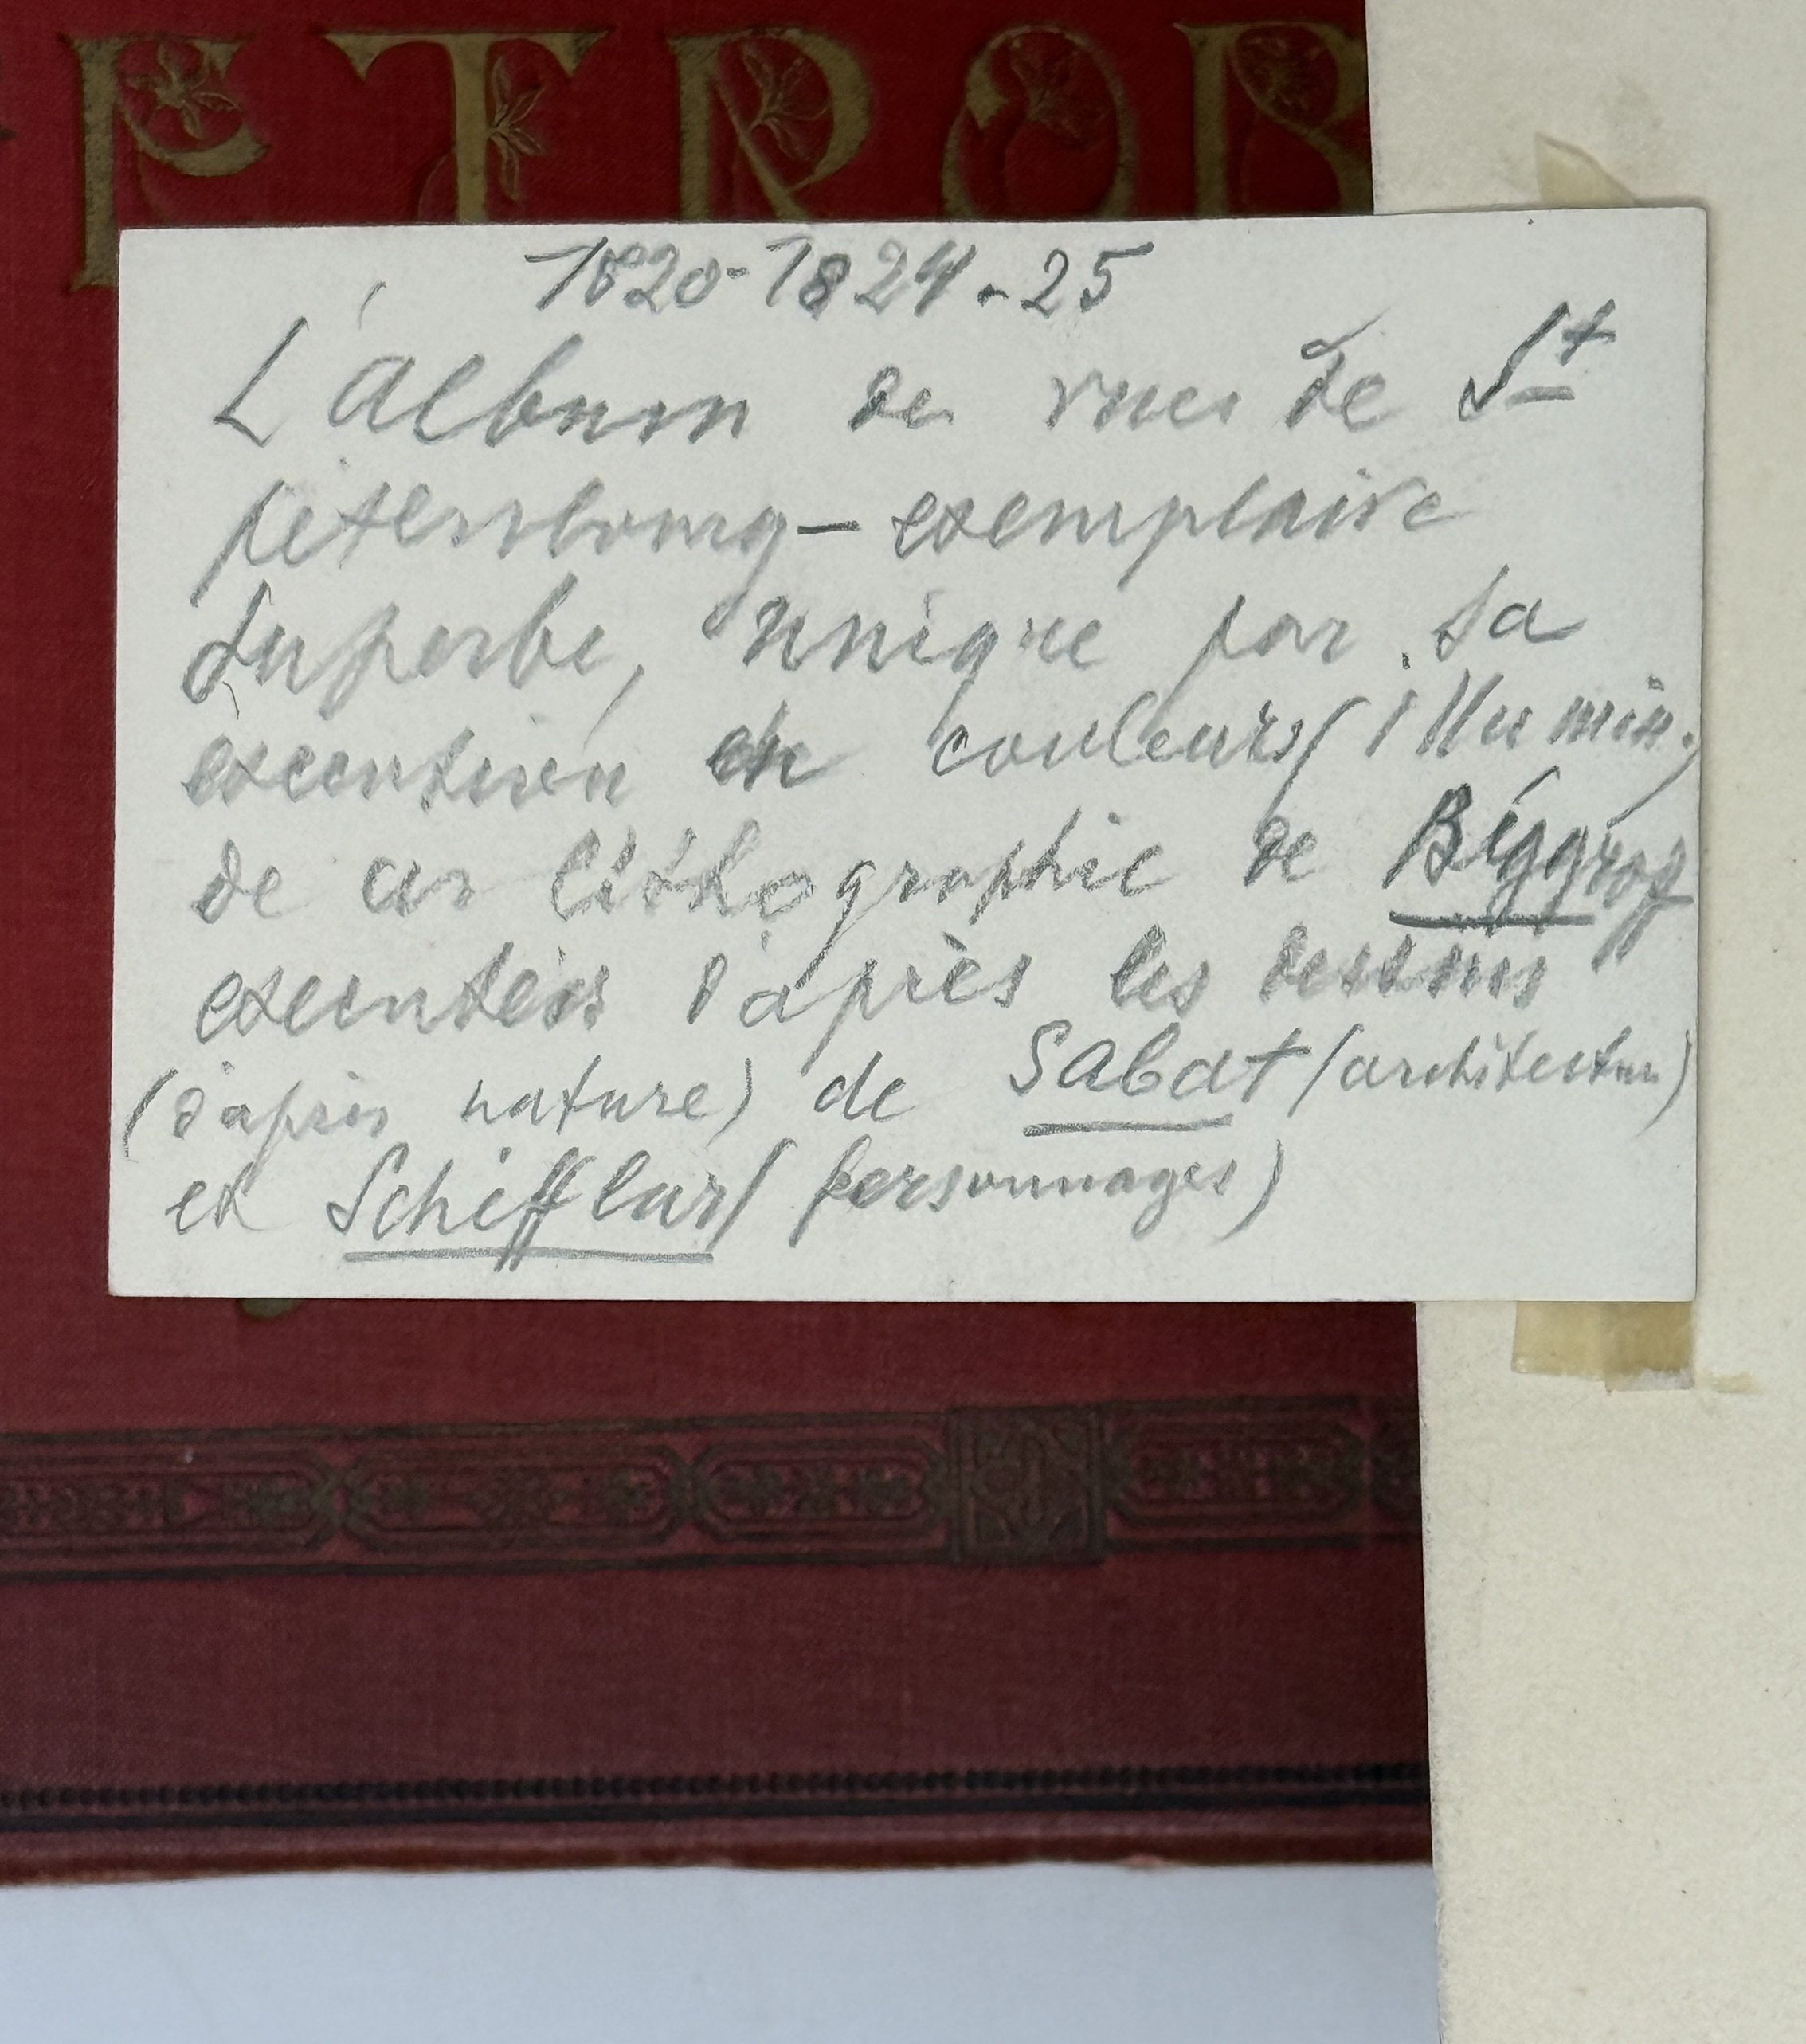 ETROB
1820-1824-25
L'album de vues de St
Pétersbourg — exemplaire
superbe, unique par sa
exécution en couleurs (illumin.)
de ces lithographie de Béggrof
exécutées d'après les dessins
(d'après nature) de Sabat (architectur)
et Schifflar (personnages)